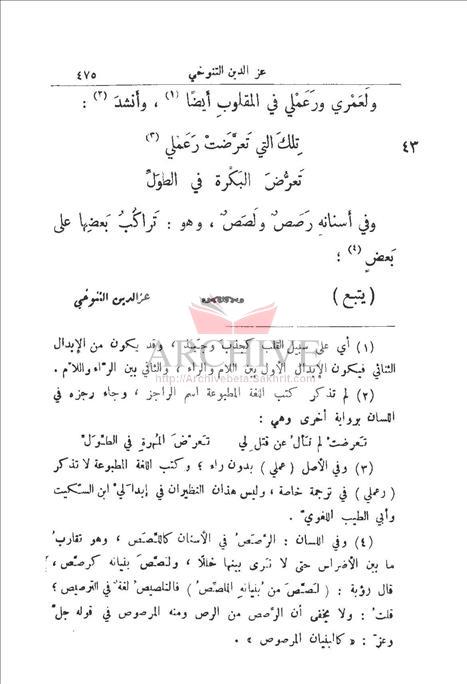 عز الدين التنوخي ٤٧٥
ولَعَمْري ورَعَمْلي في المقلوب أيضًا (١) ، وأنشدَ (٢) :
٤٣ تِلكَ التي تَعرَّضَتْ رَعَمْلي (٣)
تَعرُّضَ البَكْرة في الطوَلّ
وفي أسنانهِ رَصَصٌ ولَصَصٌ ، وهو : تَراكُبُ بَعضِها على
بَعضٍ (٤) ؛
( يتبع ) عزالدين التنوخي
ARCHIVE
http://Archivebeta.Sakhrit.com
(١) أي على سبيل القلب كجذب وجبذ ، وقد يكون من الإبدال
الثنائي فيكون الإبدال الأول بين اللام والراء ، والثاني بين الرّاء واللام .
(٢) لم تذكر كتب اللغة المطبوعة اسم الراجز ، وجاء رجزه في
اللسان برواية أخرى وهي :
تعرضتْ لم تألُ عن قتل لي تعرّضَ المُهرةِ في الطِّوَلّ
(٣) وفي الأصل ( عملي ) بدون راء ؛ وكتب اللغة المطبوعة لا تذكر
( رعملي ) في ترجمة خاصة ، وليس هذان النظيران في إبدالَيْ ابن السكّيت
وأبي الطيب اللغويّ .
(٤) وفي اللسان : الرَّصَصُ في الأسنان كاللَّصَص ، وهو تقاربُ
ما بين الأضراس حتى لا ترى بينها خللًا ، ولصّصَ بنيانه كرصّص ،
قال رؤبة : ( لَصَّصَ من بُنيانِهِ المُلَصِّصُ ) فالتلصيصُ لغة في الترصيص ؛
قلتُ : ولا يخفى أن الرَّصص من الرص ومنه المرصوص في قوله جلّ
وعزّ : « كالبنيان المرصوص » .